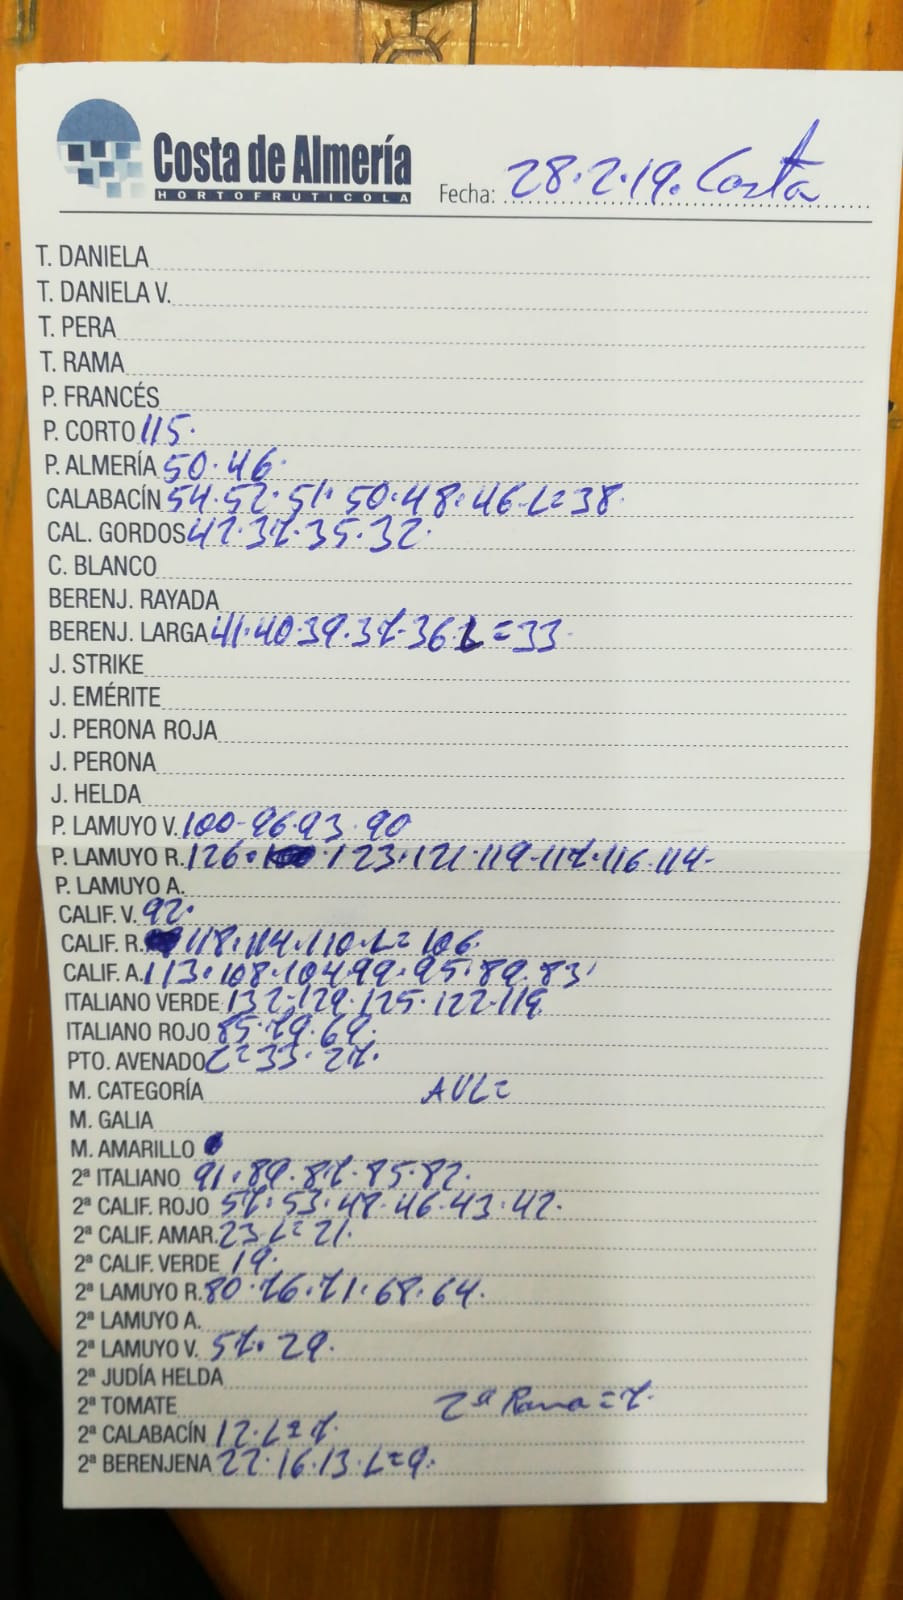 Costa de Almería
HORTOFRUTICOLA
Fecha: 28.2.19. Costa
T. DANIELA
T. DANIELA V.
T. PERA
T. RAMA
P. FRANCÉS
P. CORTO 115.
P. ALMERÍA 50.46.
CALABACÍN 54.52.51.50.48.46.L=38.
CAL. GORDOS 42.37.35.32.
C. BLANCO
BERENJ. RAYADA
BERENJ. LARGA 41.40.39.37.36.L=33.
J. STRIKE
J. EMÉRITE
J. PERONA ROJA
J. PERONA
J. HELDA
P. LAMUYO V. 100-96.93.90
P. LAMUYO R. 126.123.121.119.117.116.114-
P. LAMUYO A.
CALIF. V. 92.
CALIF. R. 118.114.110.L=106.
CALIF. A. 113.108.104.99.95.89.83.
ITALIANO VERDE 132.129.125.122.119.
ITALIANO ROJO 85.79.69.
PTO. AVENADO L=33.27.
M. CATEGORÍA AVL=
M. GALIA
M. AMARILLO
2ª ITALIANO 91.89.87.85.82.
2ª CALIF. ROJO 57.53.48.46.43.42.
2ª CALIF. AMAR. 23.L=21.
2ª CALIF. VERDE 19.
2ª LAMUYO R. 80.76.71.68.64.
2ª LAMUYO A.
2ª LAMUYO V. 57.29.
2ª JUDÍA HELDA
2ª TOMATE 2ª Rama=7.
2ª CALABACÍN 12.L=7.
2ª BERENJENA 22.16.13.L=9.